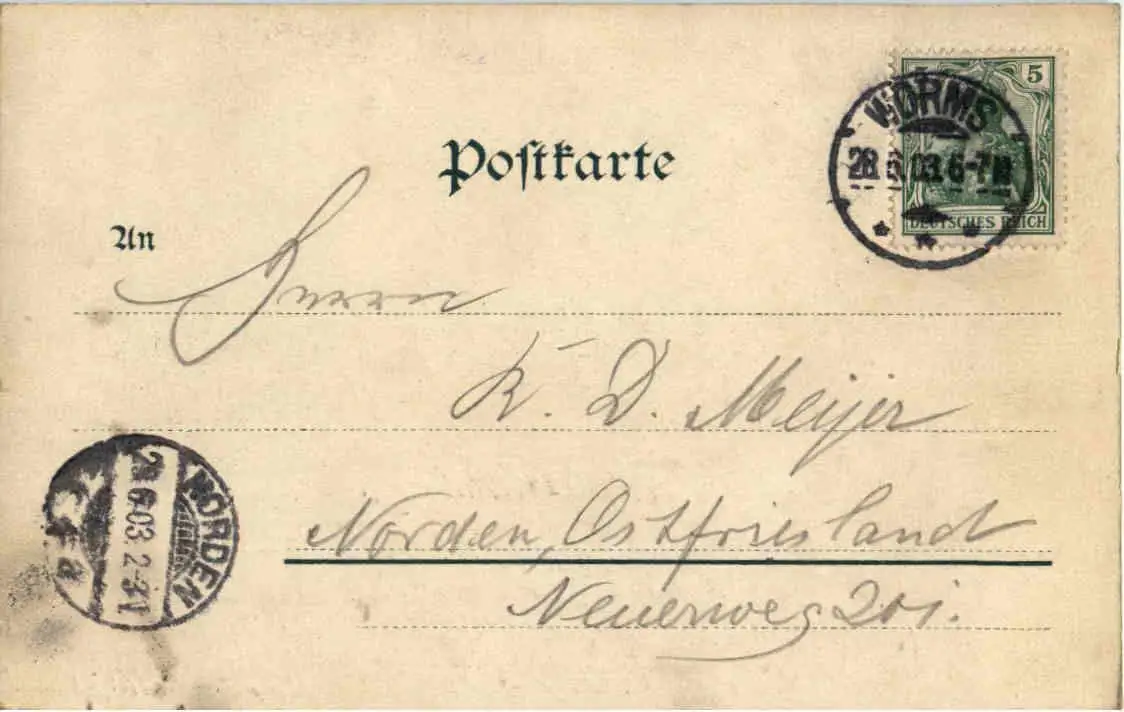 5
WORMS
28.6.03.6-7N
DEUTSCHES REICH
Postkarte
An
Herrn
K. D. Meijer
Norden, Ostfriesland
Neuerweg 201.
NORDEN
29.6.03.2-3N
a